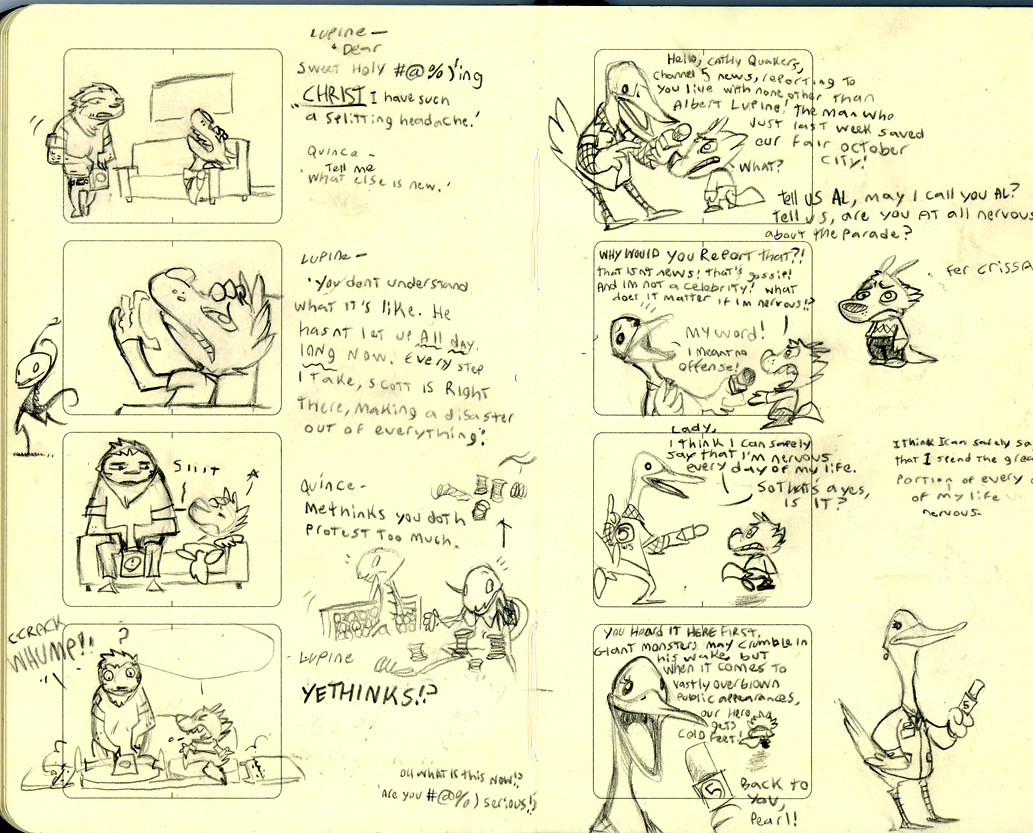 Lupine—
"Dear
Sweet Holy #@%)'ing
CHRIST I have such
a splitting headache."
Quince—
"Tell me
what else is new."
Lupine—
"You dont understand
what it's like. He
hasnt let up All day
long Now. Every step
I take, Scott is Right
There, Making a disaster
out of everything."
SIIIT
Quince—
Methinks you doth
Protest Too Much.
CCRACK
WHUMP!!
?
-Lupine
YETHINKS!?
Oh what Is this Now!?
Are you #@%) serious!?
Hello, Cathy Quakers,
Channel 5 news, reporting to
you live with none other than
Albert Lupine! The man who
Just last week saved
our fair October
City!
WHAT?
Tell us AL, may I call you AL?
Tell us, are you AT all nervous
about the Parade?
WHY WOULD you Report that?!
that isnt news! that's gossip!
And I'm not a celebrity! what
does it matter if I'm nervous!?
Fer crissa
MY WORD!
I meant no
offense!
Lady,
I think I can safely
say that I'm nervous
every day of my life.
So that's a yes,
Is IT?
5
I think I can safely sa
that I spend the grea
Portion of every
of my life
nervous.
YOU HEARD IT HERE FIRST.
Giant monsters may crumble in
his wake, but
when it comes to
vastly overblown
Public appearances,
our Hero
gets
COLD FEET!
5
BACK TO
YOU,
Pearl!
5